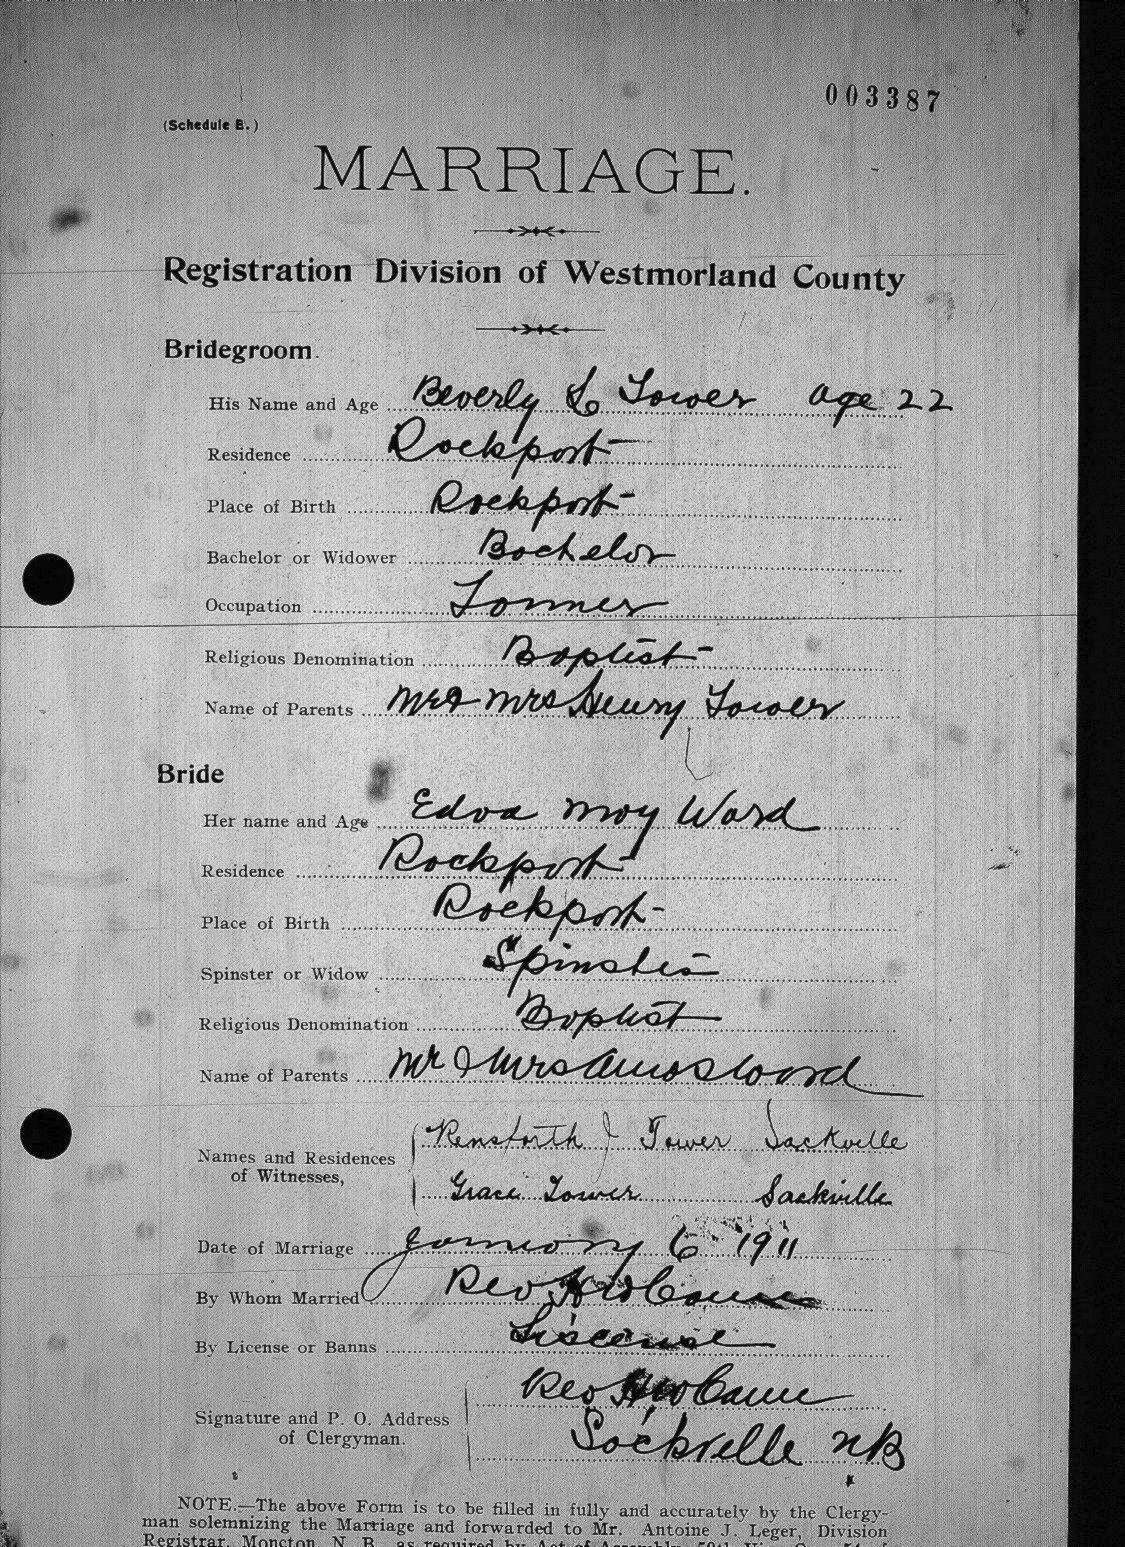 003387
(Schedule B.)
MARRIAGE.
Registration Division of Westmorland County
Bridegroom.
His Name and Age Beverly S. Tower age 22
Residence Rockport
Place of Birth Rockport
Bachelor or Widower Bachelor
Occupation Farmer
Religious Denomination Baptist
Name of Parents Mr & Mrs Henry Tower
Bride
Her name and Age Edna May Ward
Residence Rockport
Place of Birth Rockport
Spinster or Widow Spinster
Religious Denomination Baptist
Name of Parents Mr & Mrs Amos Ward
Names and Residences
of Witnesses,
Rensforth J Tower Sackville
Grace Tower Sackville
Date of Marriage January 6 1911
By Whom Married Rev
By License or Banns Liscense
Rev
Signature and P. O. Address
of Clergyman.
Sackville NB
NOTE.—The above Form is to be filled in fully and accurately by the Clergy-
man solemnizing the Marriage and forwarded to Mr. Antoine J. Leger, Division
Registrar, Moncton, N. B. as required by Act of Assembly,